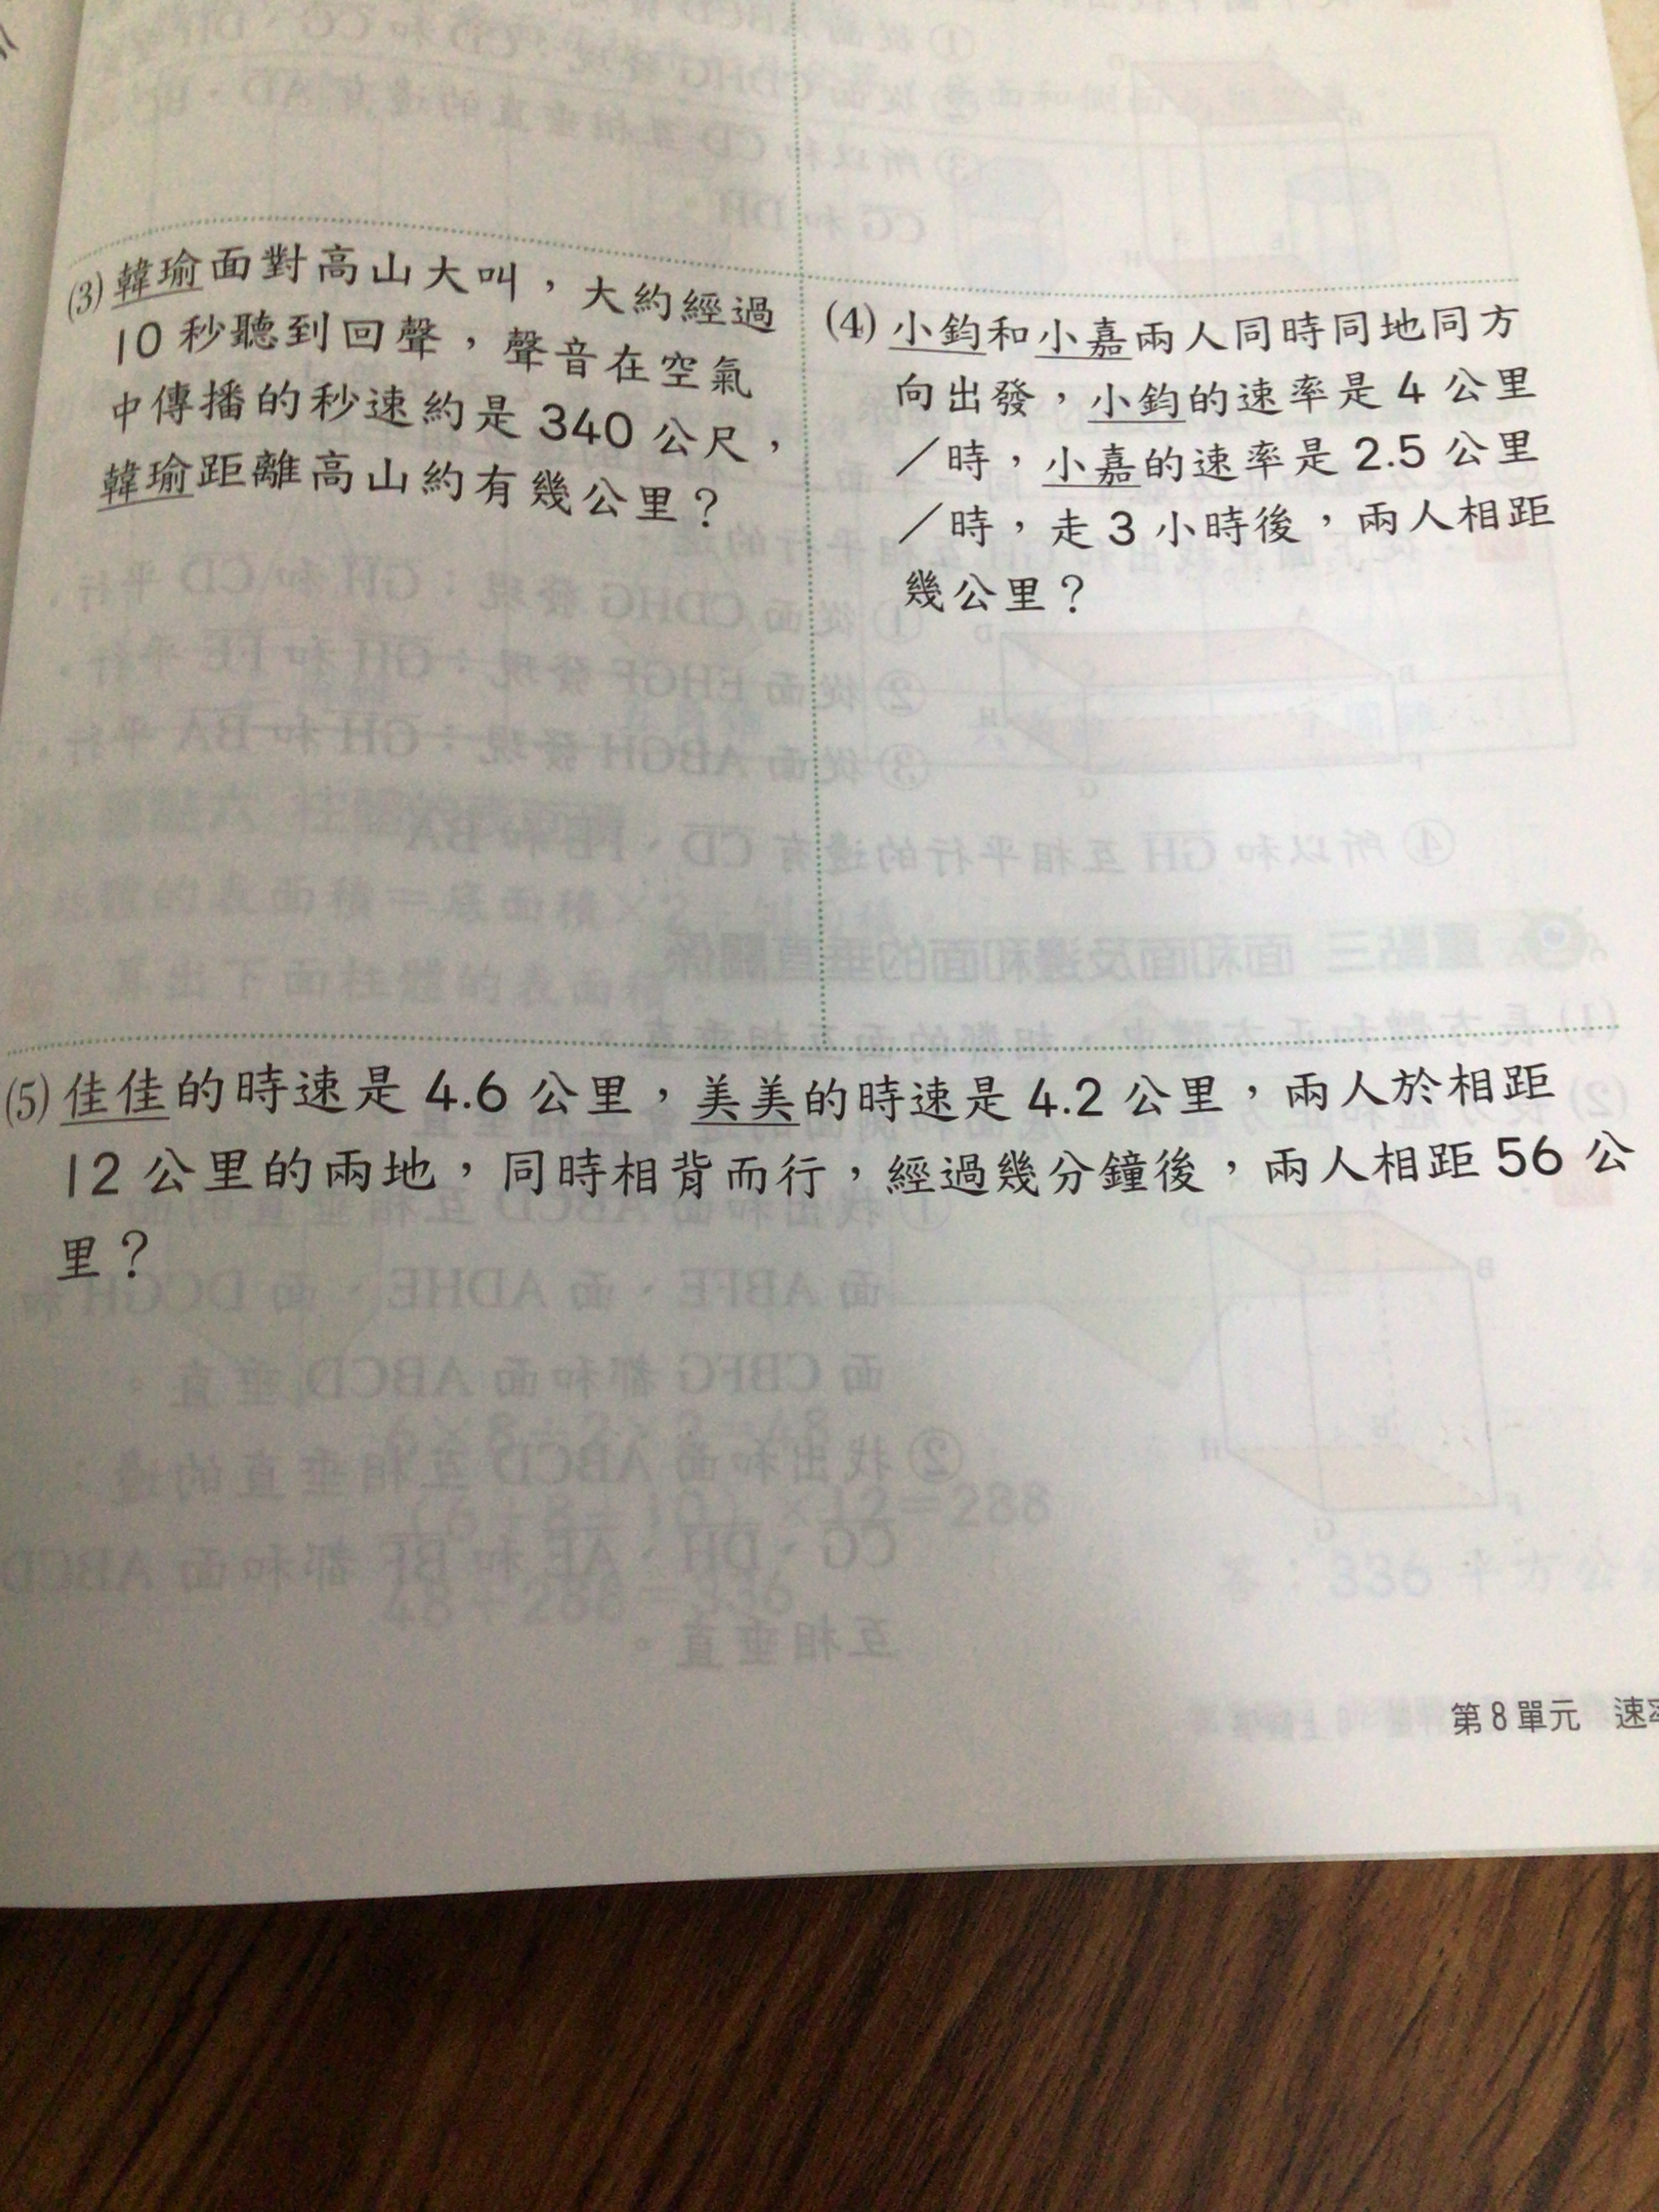 (3)韓瑜面對高山大叫，大約經過
10秒聽到回聲，聲音在空氣
中傳播的秒速約是340公尺，
韓瑜距離高山約有幾公里？
(4)小鈞和小嘉兩人同時同地同方
向出發，小鈞的速率是4公里
／時，小嘉的速率是2.5公里
／時，走3小時後，兩人相距
幾公里？
(5)佳佳的時速是4.6公里，美美的時速是4.2公里，兩人於相距
12公里的兩地，同時相背而行，經過幾分鐘後，兩人相距56公
里？
第8單元 速